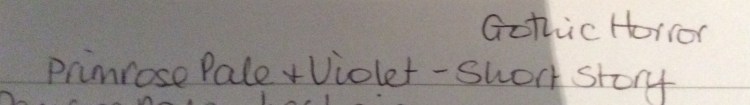 Gothic Horror
Primrose Pale + Violet - Short Story